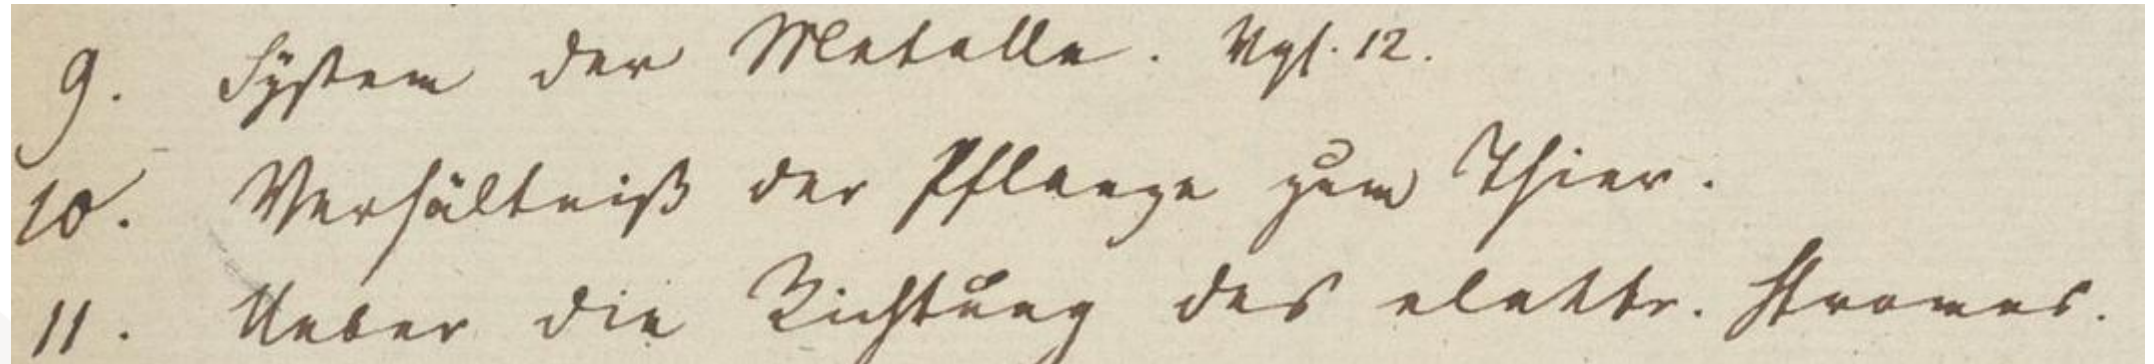 9. System der Metalle. Vgl. 12.
10. Verhältniß der Pflanze zum Thier.
11. Ueber die Richtung des elektr. Stromes.